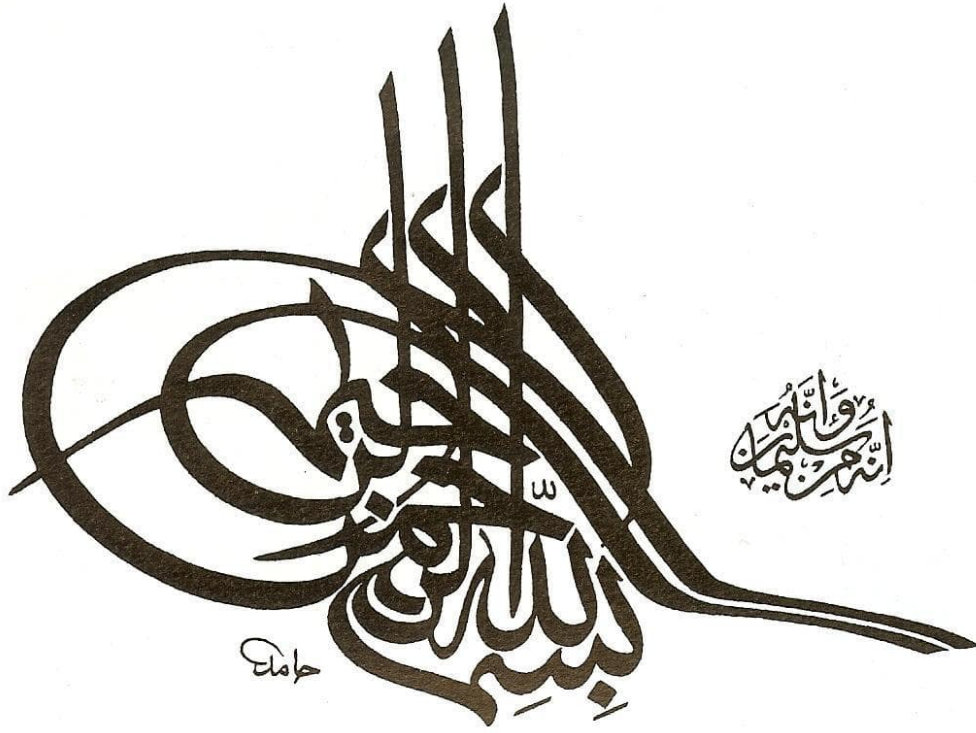 بسم الله الرحمن الرحيم
انه من سليمان وانه
حامد